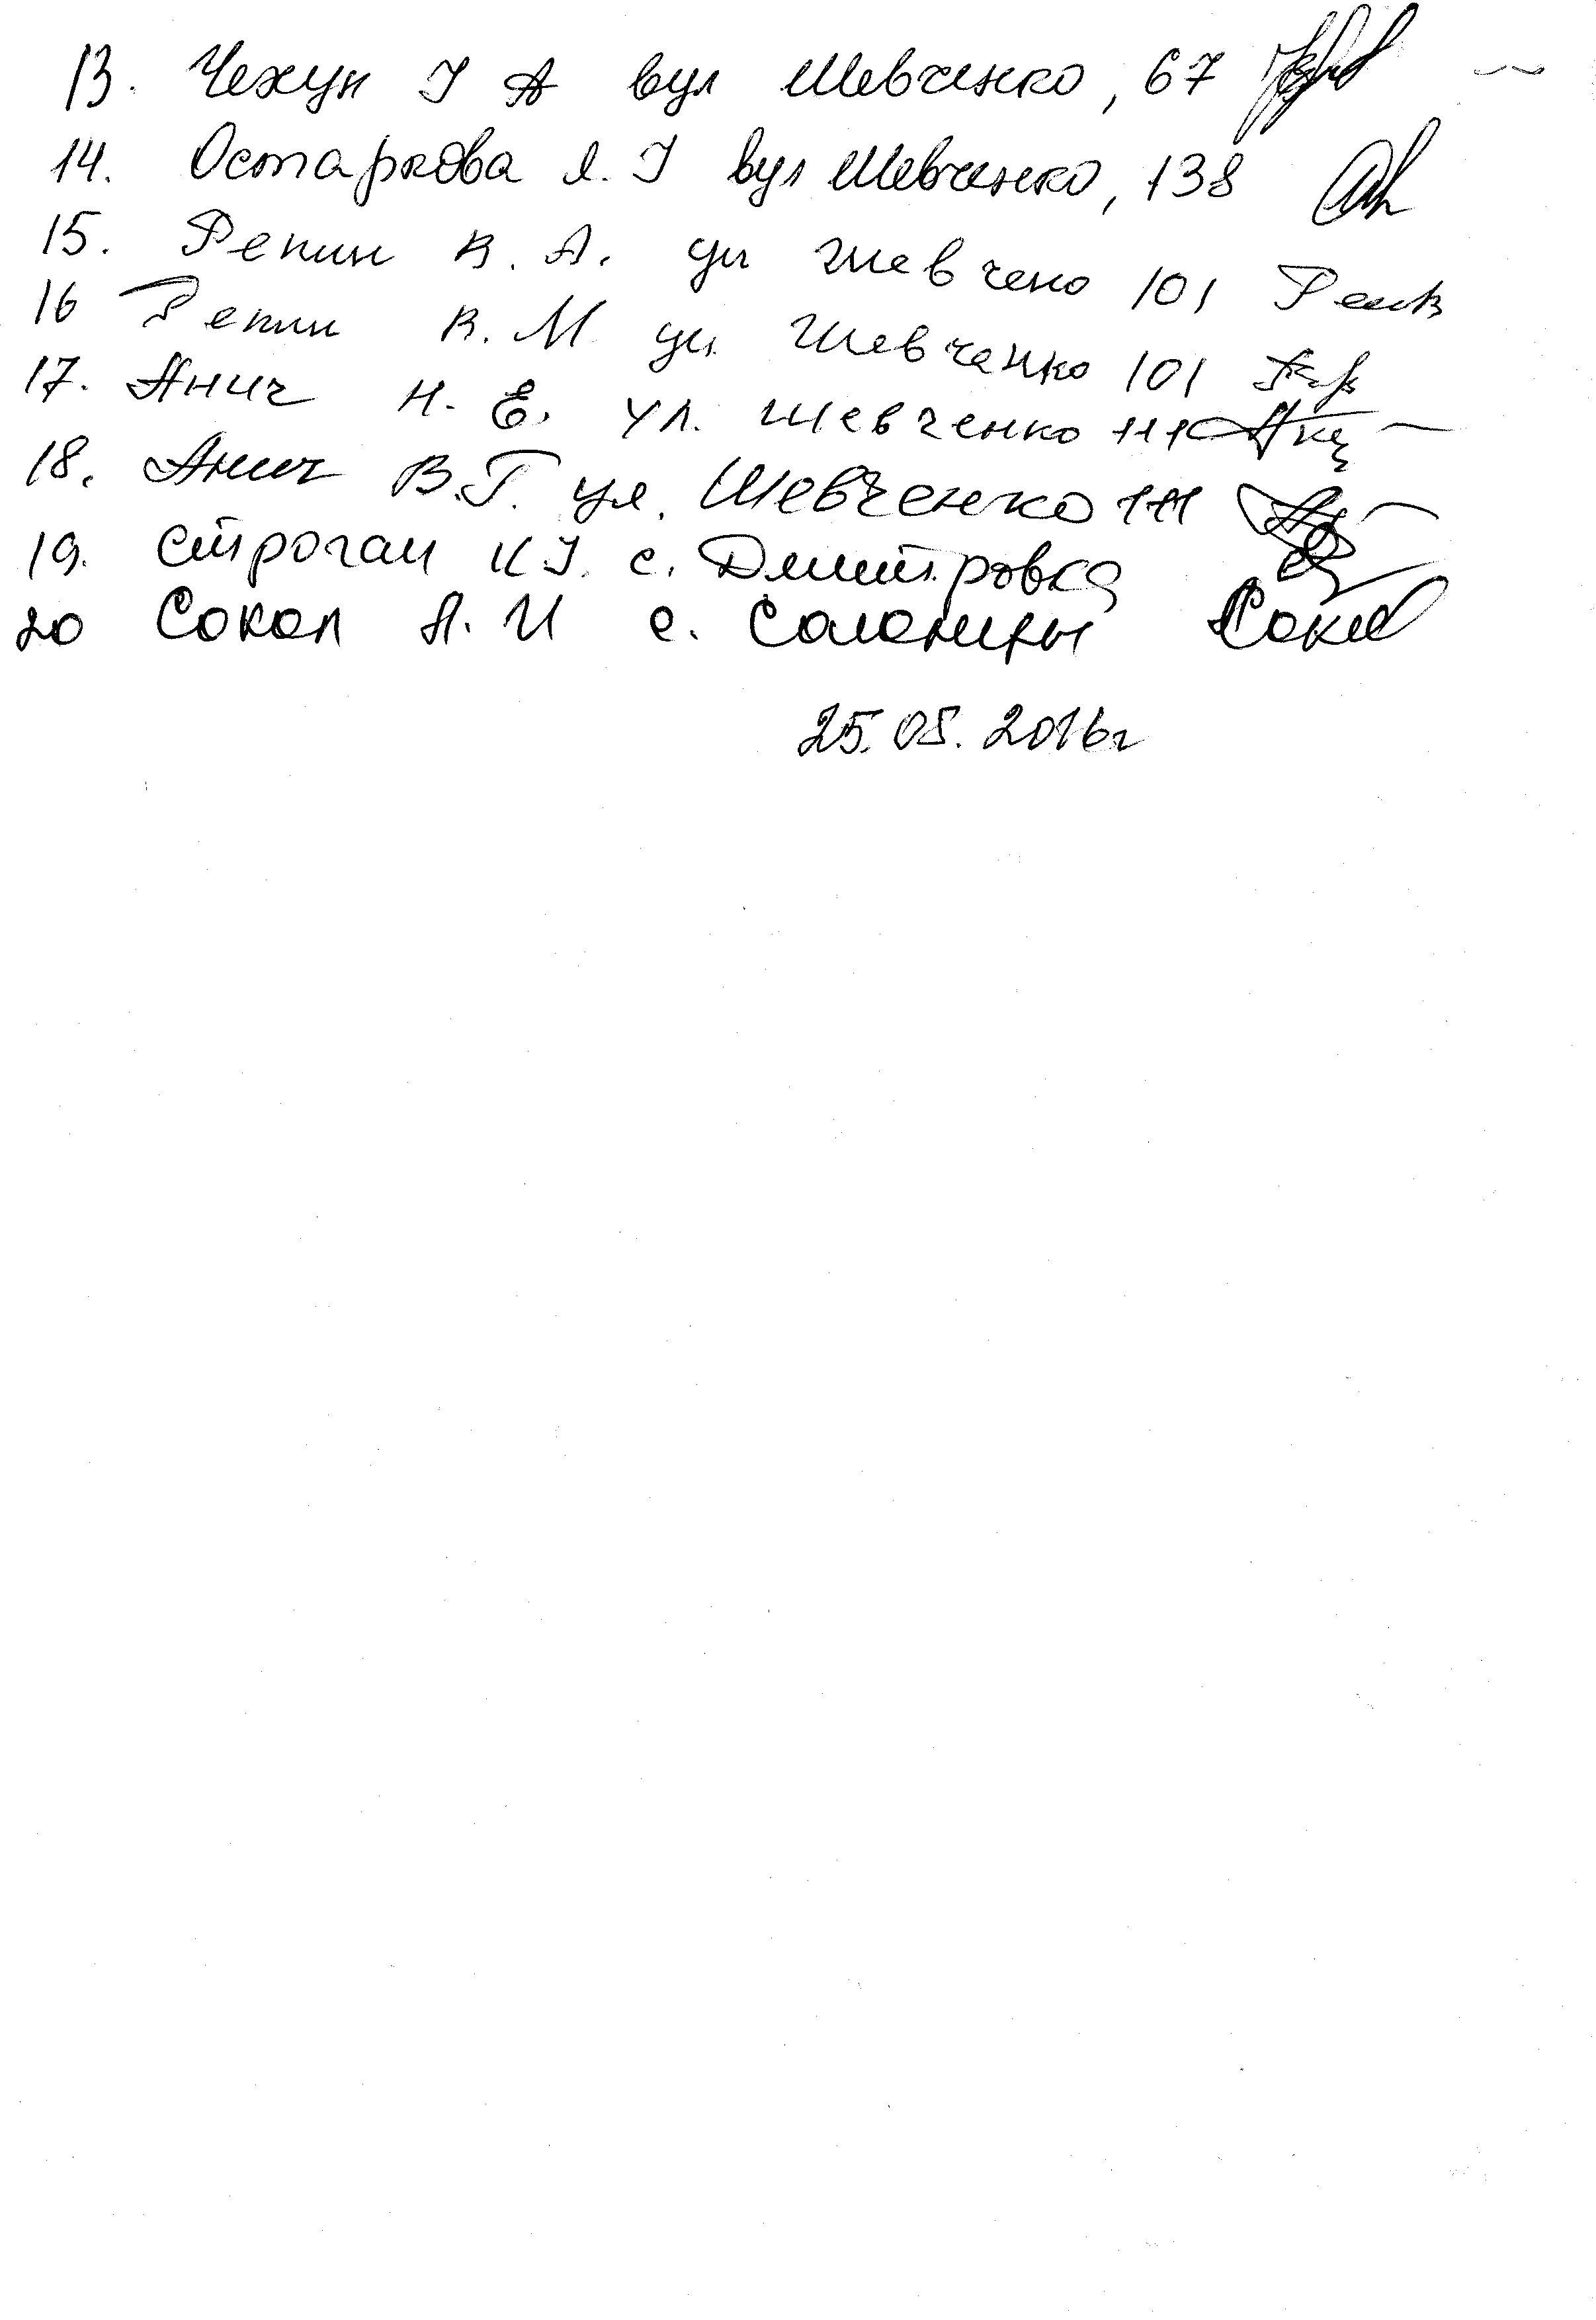 13. Чехун І А вул Шевченко, 67
14. Остаркова Л. І вул Шевченко, 138
15. Репин В. А. ул Шевчено 101 Репв
16 Репин В. М ул. Шевченко 101
17. Анич Н. Е. ул. Шевченко 111
18. Анич В.Г. ул. Шевченко 111
19. Строган К І. с. Дмитровка
20 Сокол А. И с. Солоницы
25.05.2016г